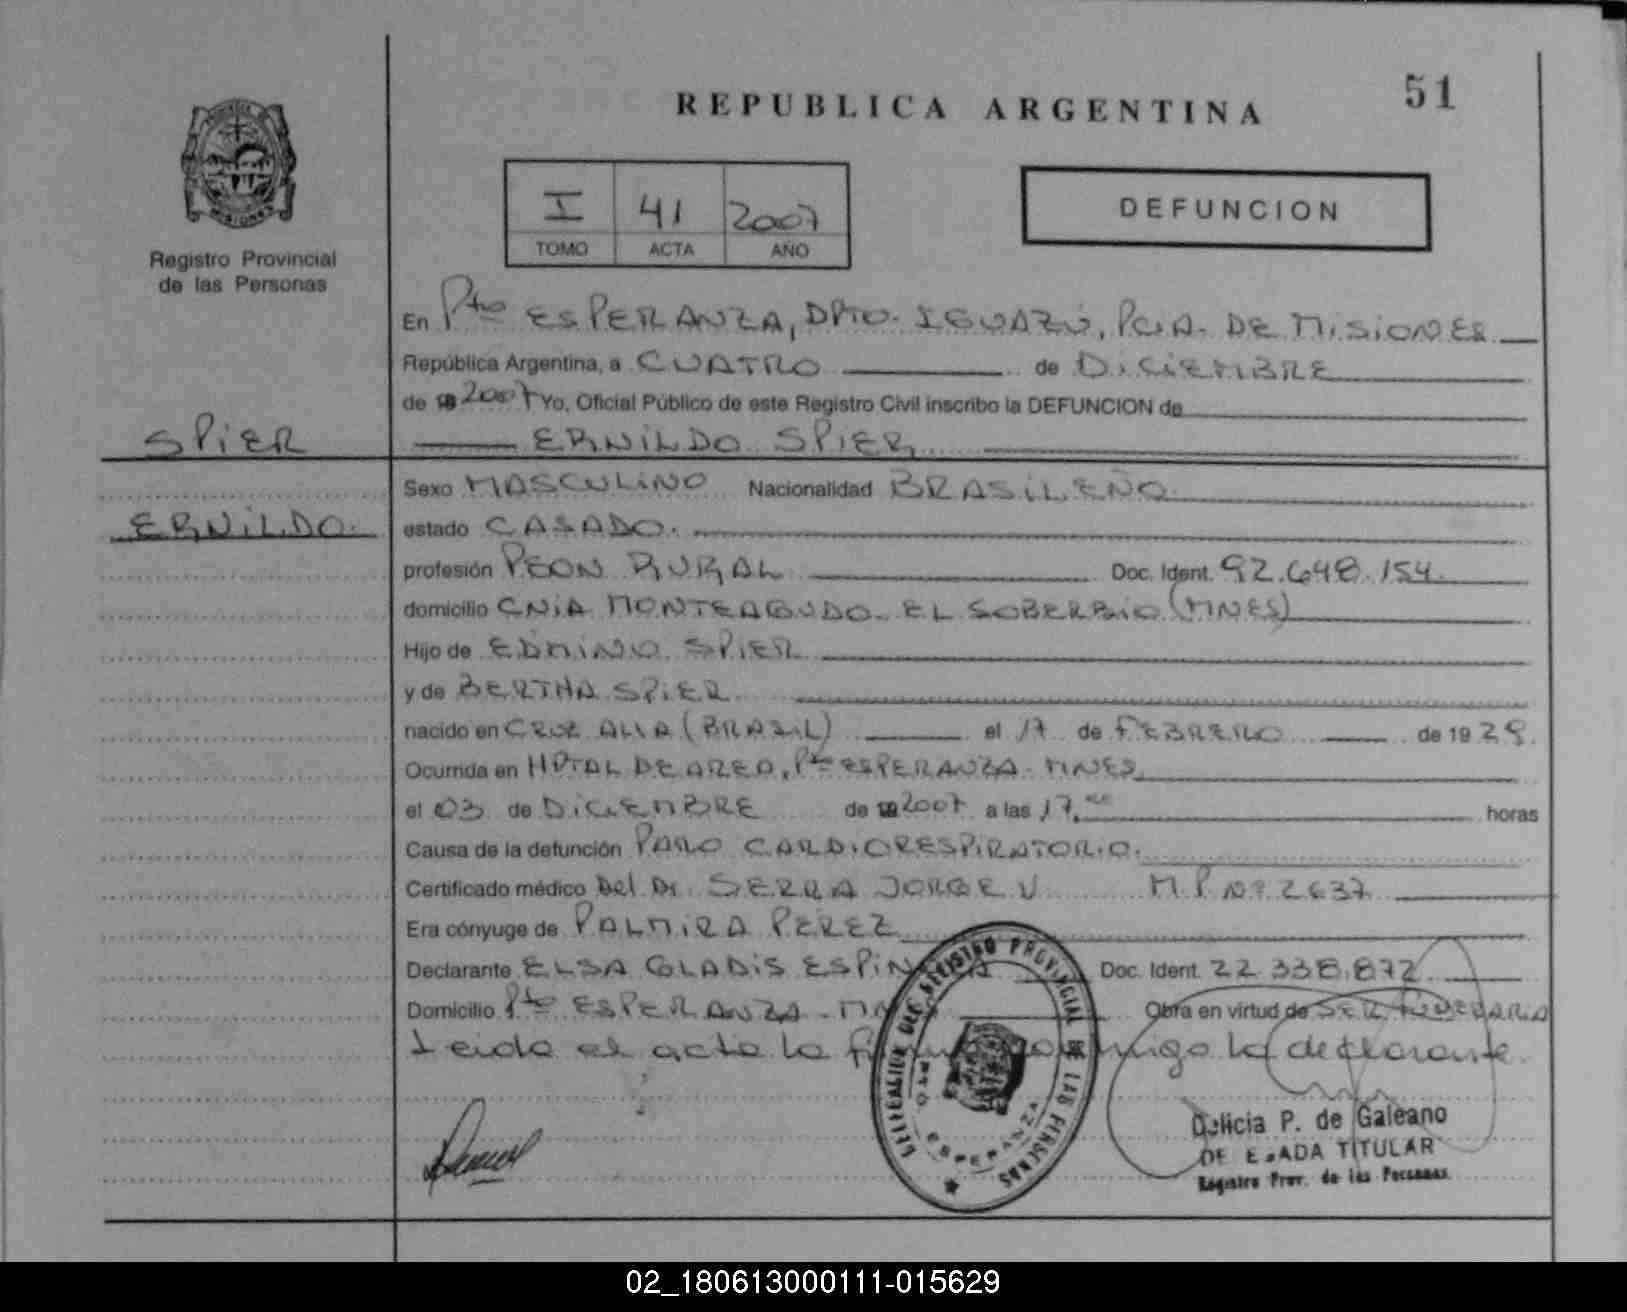 51
REPUBLICA ARGENTINA
I 41 2007
TOMO ACTA AÑO
DEFUNCION
MISIONES
Registro Provincial
de las Personas
En Pto ESPERANZA, DPTO. IGUAZÚ, PCIA. DE MISIONES
República Argentina, a CUATRO de DICIEMBRE
de 2007 Yo, Oficial Público de este Registro Civil inscribo la DEFUNCION de
SPIER
ERNILDO SPIER
Sexo MASCULINO Nacionalidad BRASILEÑO
ERNILDO.
estado CASADO.
profesión PEON RURAL Doc. Ident. 92.648.154.
domicilio CNIA MONTEAGUDO. EL SOBERBIO (MNES)
Hijo de EDMINO SPIER
y de BERTHA SPIER
nacido en CRUZ ALTA (BRASIL) el 17 de FEBRERO de 1929.
Ocurrida en HPTAL DE AREA, Pto ESPERANZA - MNES,
el 03 de DICIEMBRE de 2007 a las 17,00 horas
Causa de la defunción PARO CARDIORESPIRATORIO.
Certificado médico Del Dr. SERRA JORGE V. M.P. Nº 2637
Era cónyuge de PALMIRA PEREZ
Declarante ELSA GLADIS ESPINOZA Doc. Ident. 22.338.872
Domicilio Pto ESPERANZA - MNES Obra en virtud de SER FUNERARIA
Leida el acta la firma conmigo la declarante.
DELEGACION DEL REGISTRO PROVINCIAL DE LAS PERSONAS
ESPERANZA
Delicia P. de Galeano
DELEGADA TITULAR
Registro Prov. de las Personas
02_180613000111-015629